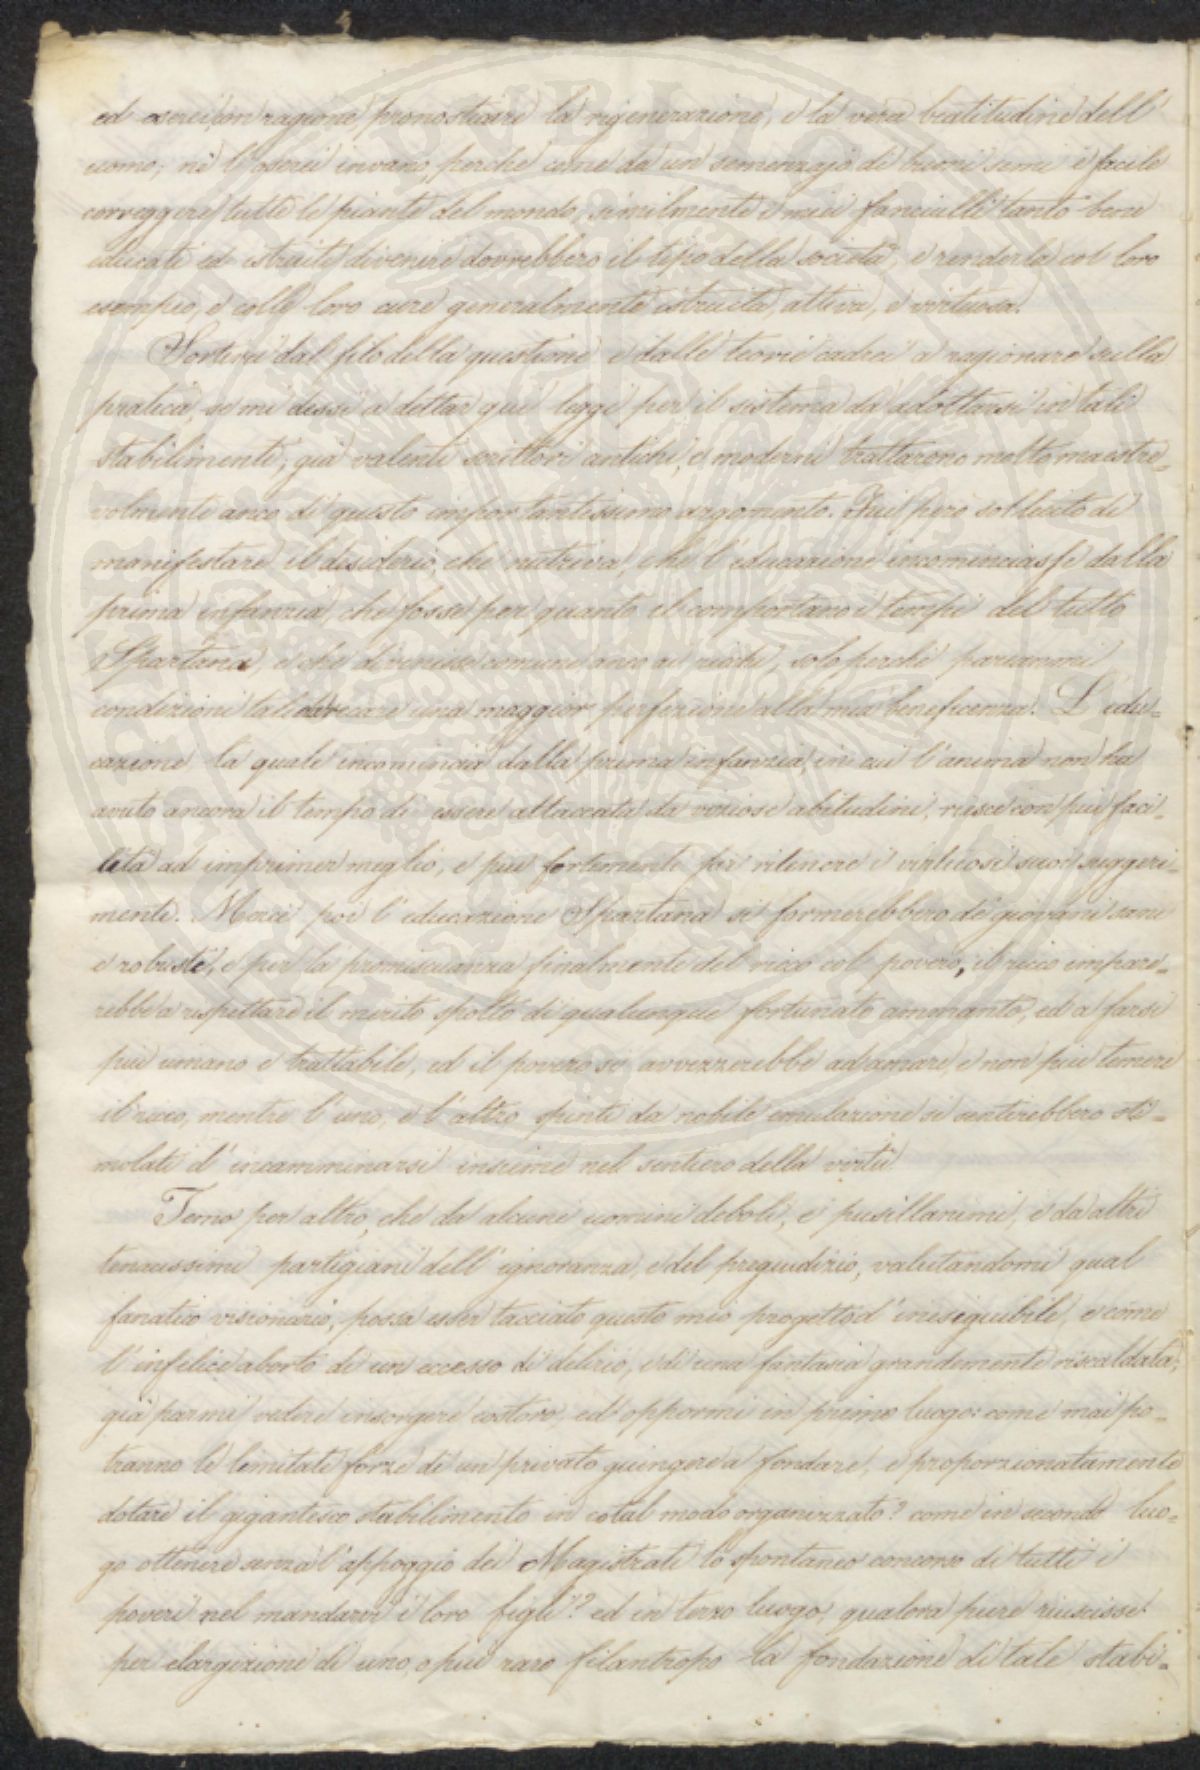 ed oserei con ragione pronosticare la rigenerazione, e la vera beatitudine dell'
uomo; nè l'oserei invano, perchè come da un semenzajo di buoni semi è facile
correggere tutte le piante del mondo, similmente i miei fanciulli tanto bene
educati ed istruiti divenire dovrebbero il tipo della società, e renderla col loro
esempio, e colle loro cure generalmente istruita, attiva, e virtuosa.
Sortirei dal filo della questione e dalle teorie cadrei a ragionare sulla
pratica, se mi dessi a dettar quì leggi per il sistema da adottarsi in tali
stabilimenti; già valenti scrittori antichi, e moderni trattarono molto maestre-
volmente anco di questo importantissimo argomento. Fui però sollecito di
manifestare il desiderio, che nutriva, che l'educazione incominciasse dalla
prima infanzia, che fosse per quanto il comportano i tempi del tutto
Spartana, e che divenisse comune anco ai ricchi, solo perchè pareanmi
condizioni tali da recare una maggior perfezione alla mia beneficenza. L'edu-
cazione la quale incomincia dalla prima infanzia, in cui l'anima non ha
avuto ancora il tempo di essere attaccata da viziose abitudini, riesce con più faci-
lità ad imprimer meglio, e più fortemente far ritenere i virtuosi suoi suggeri-
menti. Mercè poi l'educazione Spartana si formerebbero de' giovani sani
e robusti, e per la promiscuanza finalmente del ricco col povero, il ricco impare-
rebbe a rispettare il merito spolto di qualunque fortunato ammanto, ed a farsi
più umano e trattabile, ed il povero si avvezzerebbe ad amare, e non più temere
il ricco, mentre l'uno, e l'altro spinti da nobile emulazione si sentirebbero sti-
molati d'incamminarsi insieme nel sentiero della virtù.
Temo per altro, che da alcuni uomini deboli, e pusillanimi, e da altri
tenacissimi partigiani dell'ignoranza, e del pregiudizio, valutandomi qual
fanatico visionario, possa esser tacciato questo mio progetto d'ineseguibile, e come
l'infelice aborto di un eccesso di delirio, e di una fantasia grandemente riscaldata;
già parmi vedere insorgere costoro, ed oppormi in primo luogo: come mai po-
tranno le limitate forze di un privato giungere a fondare, e proporzionatamente
dotare il gigantesco stabilimento in cotal modo organizzato? come in secondo luo-
go ottenere senza l'appoggio dei Magistrati lo spontaneo concorso di tutti i
poveri nel mandarvi i loro figli? ed in terzo luogo, qualora pure riuscisse
per elargizione di uno, o più raro filantropo la fondazione di tale stabi-